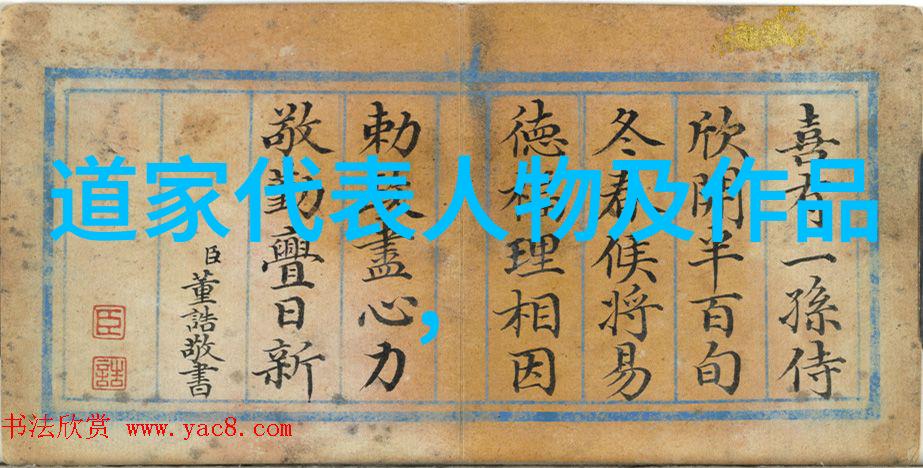 道家代表人物及作品
，
喜有一孫侍
欣開半百旬
冬春候將易
德理相因
勅盡心力
敬勤亹日新
臣董誥敬書
臣
誥
书法欣赏 www.yac8.com